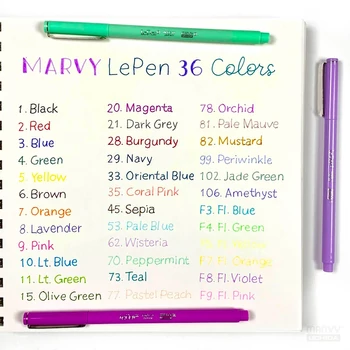 MARVY LePen 36 Colors
1. Black
2. Red
3. Blue
4. Green
5. Yellow
6. Brown
7. Orange
8. Lavender
9. Pink
10. Lt. Blue
11. Lt. Green
15. Olive Green
20. Magenta
21. Dark Grey
28. Burgundy
29. Navy
33. Oriental Blue
35. Coral Pink
45. Sepia
53. Pale Blue
62. Wisteria
70. Peppermint
73. Teal
77. Pastel Peach
78. Orchid
81. Pale Mauve
82. Mustard
99. Periwinkle
102. Jade Green
106. Amethyst
F3. Fl. Blue
F4. Fl. Green
F7. Fl. Orange
F8. Fl. Violet
F9. Fl. Pink